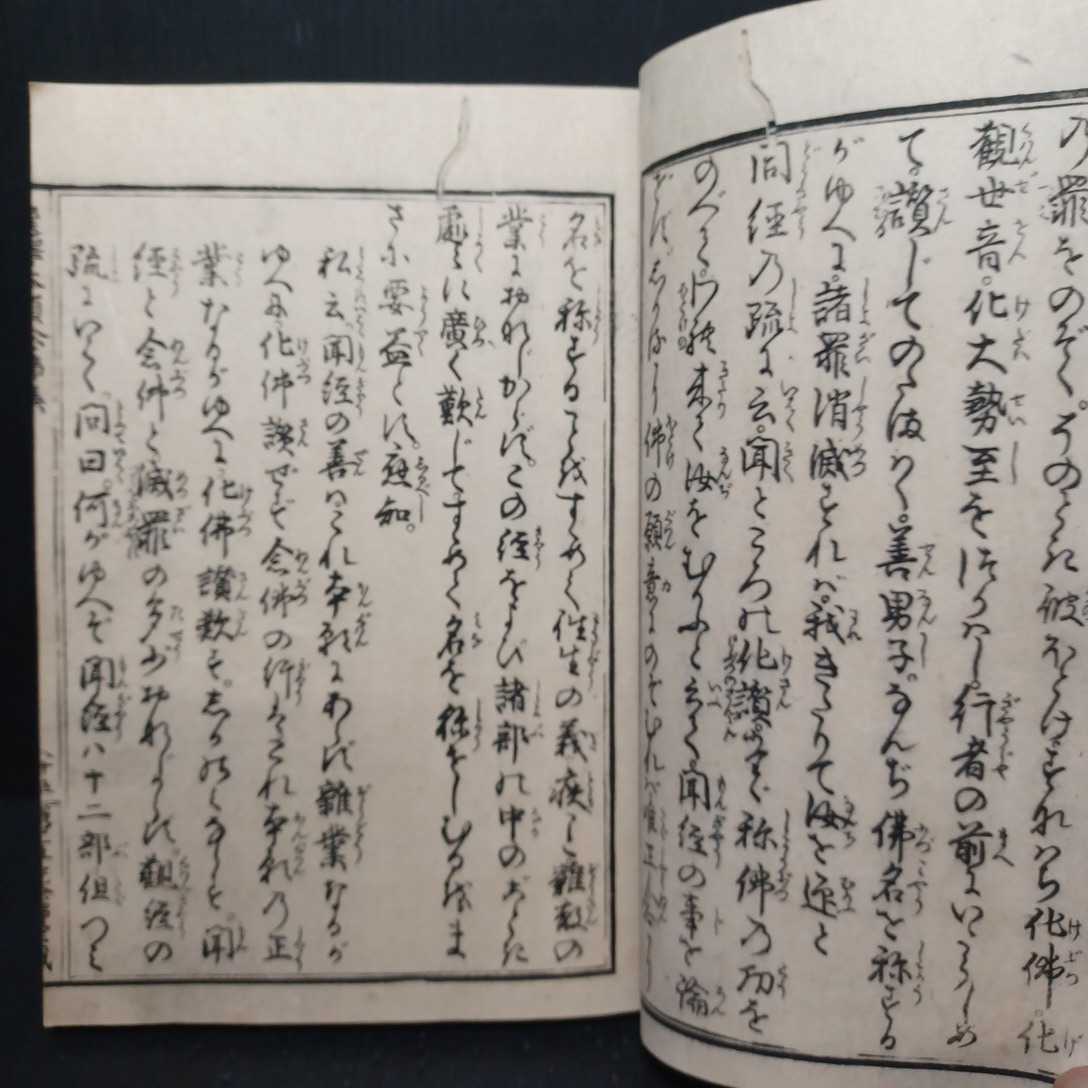 の罪をのぞく。そのときに彼ほとけすなはち化佛。化
觀世音。化大勢至をつかはし。行者の前にいたらしめ
て。讃じてのたまはく。善男子。なんぢ佛名を称する
がゆへに。諸罪消滅すれば。我きたりて汝を迎と
同經の疏に云。聞ところの化讃。たゞ称佛の功を
のべて。我来て汝をむかふと云て。聞經の事を論
ぜず。しかるに佛の願意にのぞむれば
名を称することをすゝめて往生の義疾こと雜散の
業におなじからず。この經をよび諸部の中のごときに
處々に廣く歎じてすゝめて名を称せしむるをま
さに要益とす。應知。
私云。聞經の善はこれ本願にあらず雜業なるが
ゆへに化佛讃ぜず念佛の行はこれ本願の正
業なるがゆへに化佛讃歎す。しかのみならず。聞
經と念佛と滅罪の多少おなじからず觀經の
疏にいはく。問曰。何がゆへぞ聞經八十二部但つみ